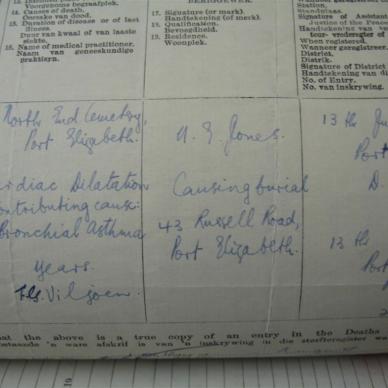 Voorgenome begraafplek.
14. Causes of death.
Oorsake van dood.
15. Duration of disease or of last
illness.
Duur van kwaal of van laaste
siekte.
16. Name of medical practitioner.
Naam van geneeskundige
praktisyn.
17. Signature (or mark).
Handtekening (of merk).
18. Qualification.
Bevoegdheid.
19. Residence.
Woonplek.
Station.
Standplaas.
Signature of Assistant
Justice of the Peace
Handtekening van
When registered.
Wanneer geregistreer.
District.
Distrik.
Signature of District
Handtekening van di
No. of Entry.
No. van inskrywing.
North End Cemetery,
Port Elizabeth.
Cardiac Dilatation
Contributing cause:
Bronchial Asthma
years.
Viljoen.
Jones.
Causing burial
43 Russell Road,
Port Elizabeth.
13th
Port
D.
13th
Port
at the above is a true copy of an entry in the Deaths
'n ware afskrif is van 'n inskrywing in die sterfteregister